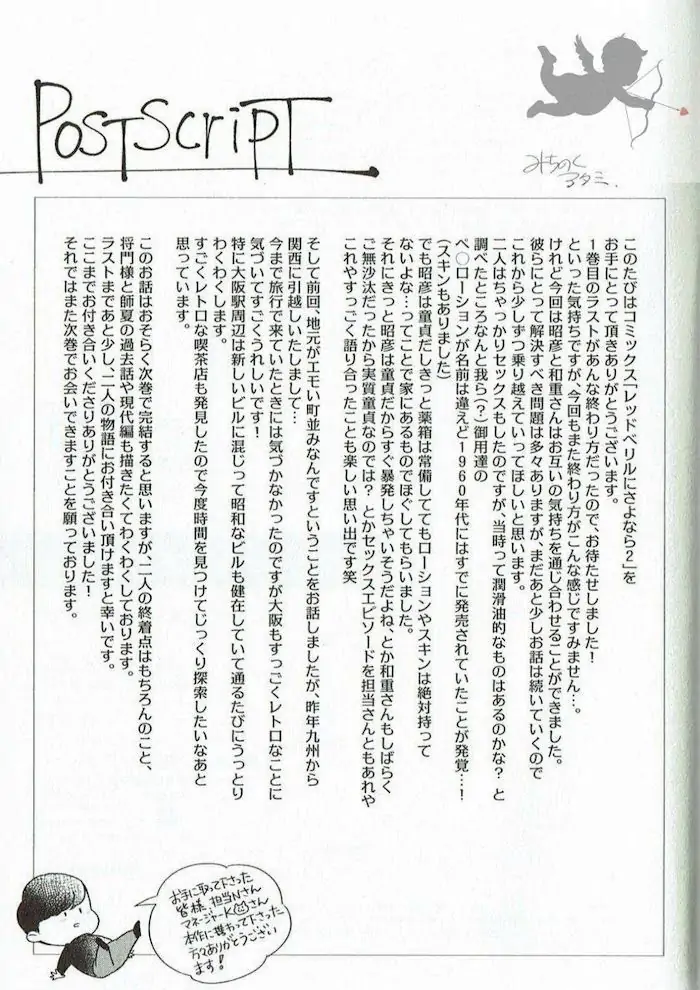 POSTSCRIPT
みちのく
アタミ.
このたびはコミックス「レッドベリルにさよなら2」を
お手にとって頂きありがとうございます。
1巻目のラストがあんな終わり方だったので、お待たせしました!
といった気持ちですが、今回もまた終わり方がこんな感じですみません…。
けれど今回は昭彦と和重さんはお互いの気持ちを通じ合わせることができました。
彼らにとって解決すべき問題は多々ありますが、まだあと少しお話は続いていくので
これから少しずつ乗り越えていってほしいと思います。
二人はちゃっかりセックスもしたのですが、当時って潤滑油的なものはあるのかな? と
調べたところなんと我ら(?)御用達の
ペ〇ローションが名前は違えど1960年代にはすでに発売されていたことが発覚…!
(スキンもありました)
でも昭彦は童貞だしきっと薬箱は常備しててもローションやスキンは絶対持って
ないよな…ってことで家にあるものでほぐしてもらいました。
それにきっと昭彦は童貞だからすぐ暴発しちゃいそうだよね、とか和重さんもしばらく
ご無沙汰だったから実質童貞なのでは? とかセックスエピソードを担当さんともあれや
これやすっごく語り合ったことも楽しい思い出です笑
そして前回、地元がエモい町並みなんですということをお話しましたが、昨年九州から
関西に引越しいたしまして…
今まで旅行で来ていたときには気づかなかったのですが大阪もすっごくレトロなことに
気づいてすごくうれしいです!
特に大阪駅周辺は新しいビルに混じって昭和なビルも健在していて通るたびにうっとり
わくわくします。
すごくレトロな喫茶店も発見したので今度時間を見つけてじっくり探索したいなあと
思っています。
このお話はおそらく次巻で完結すると思いますが、二人の終着点はもちろんのこと、
将門様と師夏の過去話や現代編も描きたくてわくわくしております。
ラストまであと少し、二人の物語にお付き合い頂けますと幸いです。
ここまでお付き合いくださりありがとうございました!
それではまた次巻でお会いできますことを願っております。
お手に取って下さった
皆様、担当Nさん
マネージャーKさん
本作に携わって下さった
方々ありがとうござい
ます!